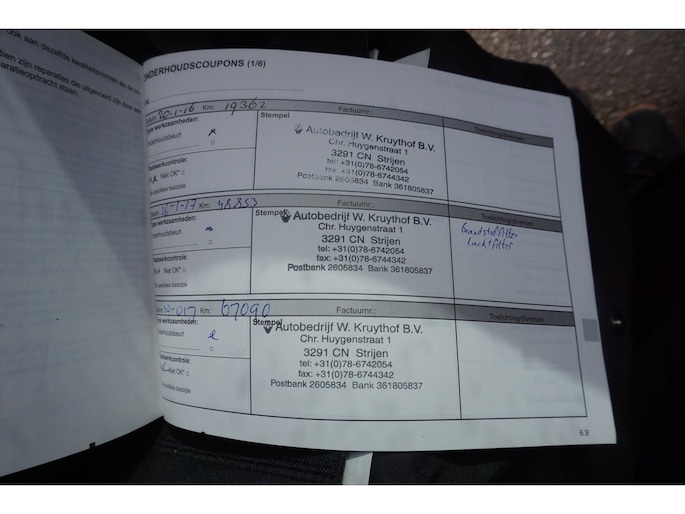 ook aan dezelfde kwaliteitsnormen als de
dien zijn reparaties die uitgevoerd zijn door
paratieopdracht staan.
ONDERHOUDSCOUPONS (1/6)
Datum: 20-1-16 Km: 19362
Factuurnr.:
Toelichting/diversen
Type werkzaamheden:
Onderhoudsbeurt
Stempel
Autobedrijf W. Kruythof B.V.
Chr. Huygenstraat 1
3291 CN Strijen
tel: +31(0)78-6742054
fax: +31(0)78-6744342
Postbank 2605834 Bank 361805837
Plaatwerkcontrole:
Niet OK*
Zie specifieke bladzijde
Datum: 16-1-17 Km: 48853
Factuurnr.:
Toelichting/diversen
Type werkzaamheden:
Onderhoudsbeurt
Stempel
Autobedrijf W. Kruythof B.V.
Chr. Huygenstraat 1
3291 CN Strijen
tel: +31(0)78-6742054
fax: +31(0)78-6744342
Postbank 2605834 Bank 361805837
Brandstoffilter
Luchtfilter
Plaatwerkcontrole:
Niet OK*
Zie specifieke bladzijde
Km: 67090
Factuurnr.:
Toelichting/diversen
Type werkzaamheden:
Onderhoudsbeurt
Stempel
Autobedrijf W. Kruythof B.V.
Chr. Huygenstraat 1
3291 CN Strijen
tel: +31(0)78-6742054
fax: +31(0)78-6744342
Postbank 2605834 Bank 361805837
Plaatwerkcontrole:
Niet OK*
Zie specifieke bladzijde
6.9